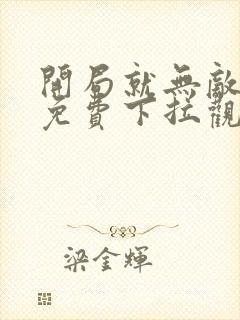 開局就無敵
免費下拉觀
梁金輝